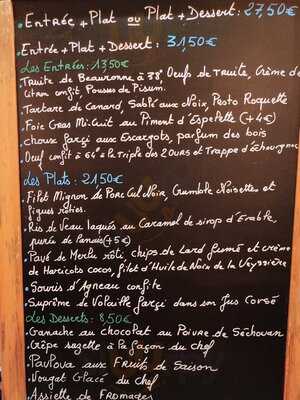 . Entrée + Plat ou Plat + Dessert : 27,50€
. Entrée + Plat + Dessert : 31,50€
Les Entrées : 13,50€
Truite de Beauronne à 38°, Oeufs de Truite, Crème de
Citron Confit, Pousses de Pisum.
. Tartare de Canard, Sablé aux Noix, Pesto Roquette
. Foie Gras Mi-Cuit au Piment d'Espelette (+4€)
. Choux farçi aux Escargots, parfum des bois
. Oeuf Confit à 64° la Triple des 2 Ours et Trappe d'Échourgnac
Les Plats : 21,50€
. Filet Mignon de Porc Cul Noir, Crumble Noisettes et
figues rôties.
. Ris de Veau laqués au Caramel de sirop d'Érable,
purée de Panais (+5€)
. Pavé de Merlu rôti, chips de Lard fumé et crème
de Haricots cocos, filet d'Huile de Noix de la Veyssière
. Souris d'Agneau confite
. Suprême de Volaille farçi dans son Jus Corsé
Les Desserts : 8,50€
. Ganache au chocolat au Poivre de Séchouan
. Crêpe suzette à la façon du chef
. Pavlova aux Fruits de Saison
. Nougat Glacé du chef
. Assiette de Fromages